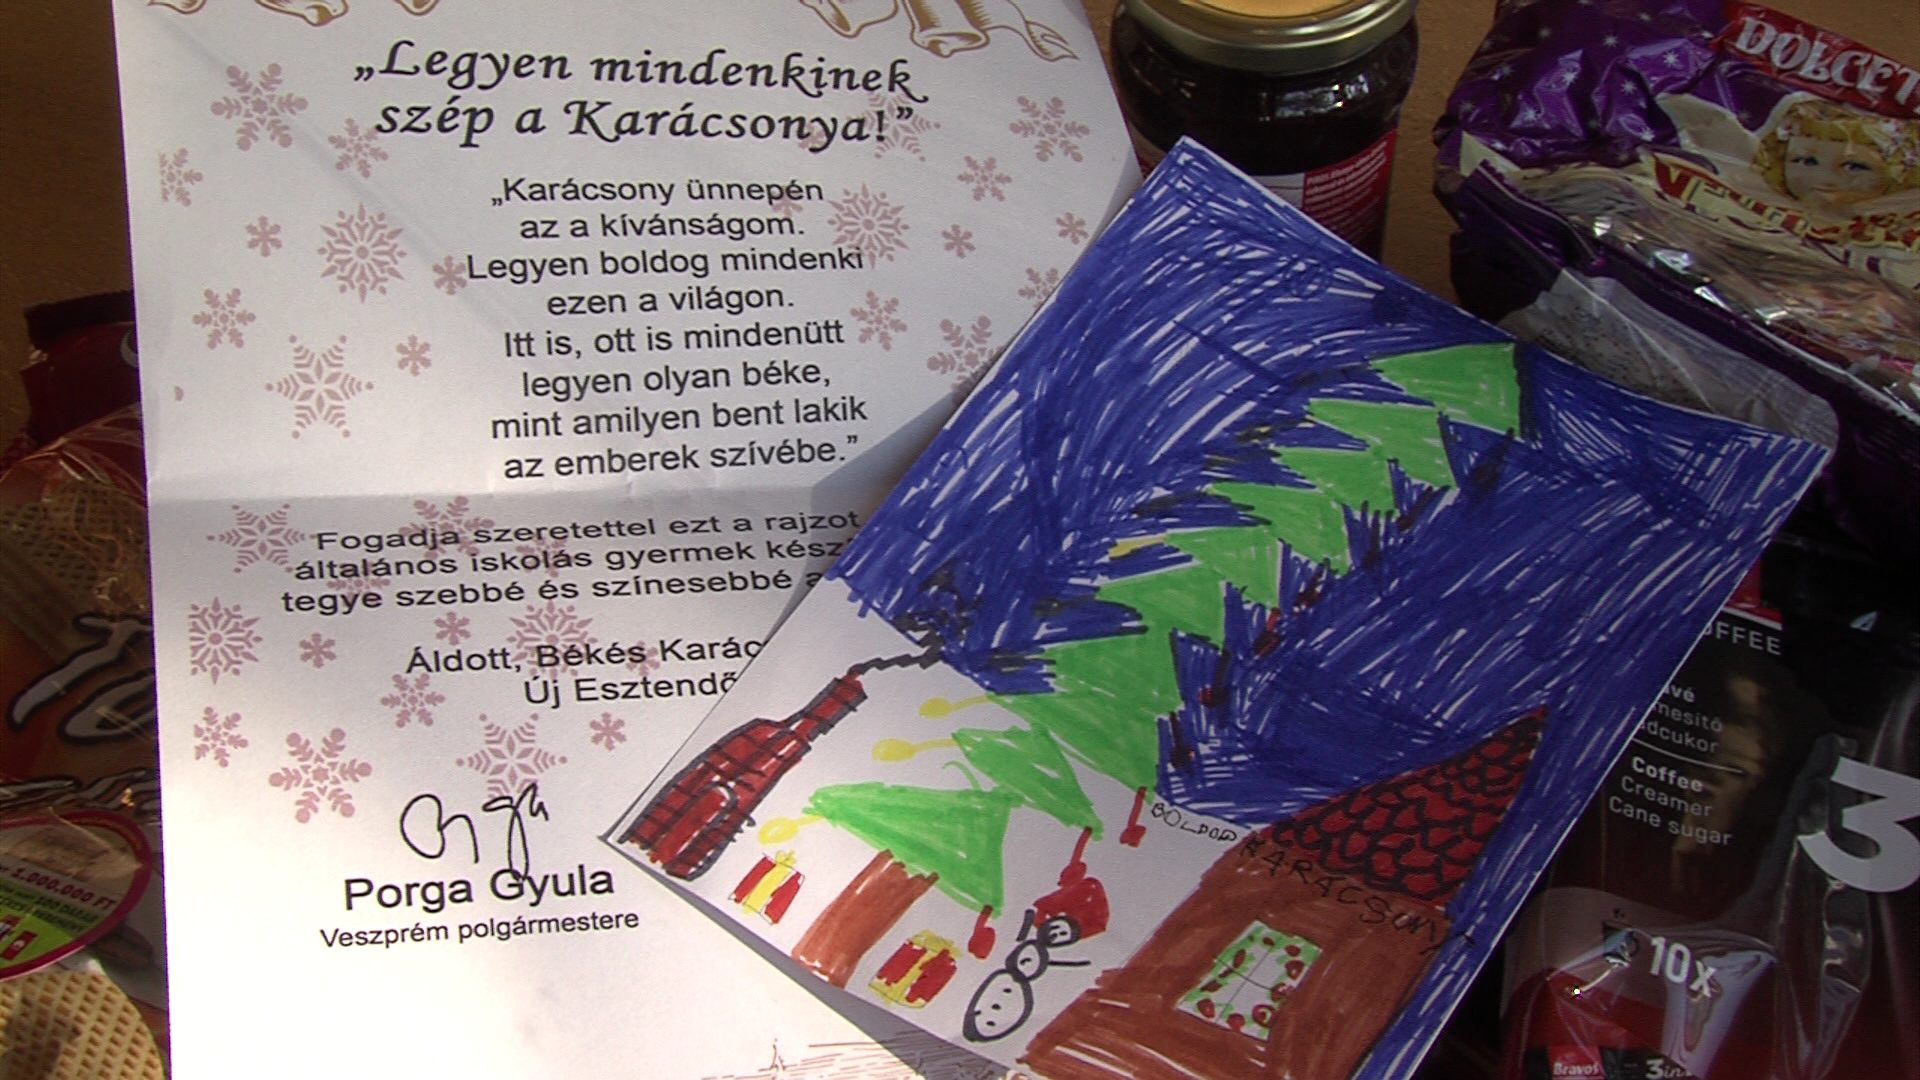 „Legyen mindenkinek
szép a Karácsonya!”
„Karácsony ünnepén
az a kívánságom.
Legyen boldog mindenki
ezen a világon.
Itt is, ott is mindenütt
legyen olyan béke,
mint amilyen bent lakik
az emberek szívébe.”
Fogadja szeretettel ezt a rajzot
általános iskolás gyermek
tegye szebbé és színesebbé
Áldott, Békés
Új
Porga Gyula
Veszprém polgármestere
BOLDOG
KARÁCSONY
1.000.000 FT
Coffee
Creamer
Cane sugar
3
10x
Bravos